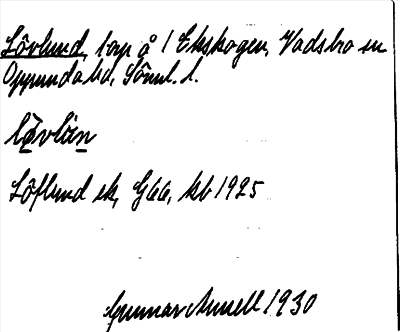 Lövlund, torp å / Ekskogen, Vadsbro sn
Oppunda hd, Söml. l.
lövlún
Löflund ek, G66, kb 1925
Gunnar Arnell 1930